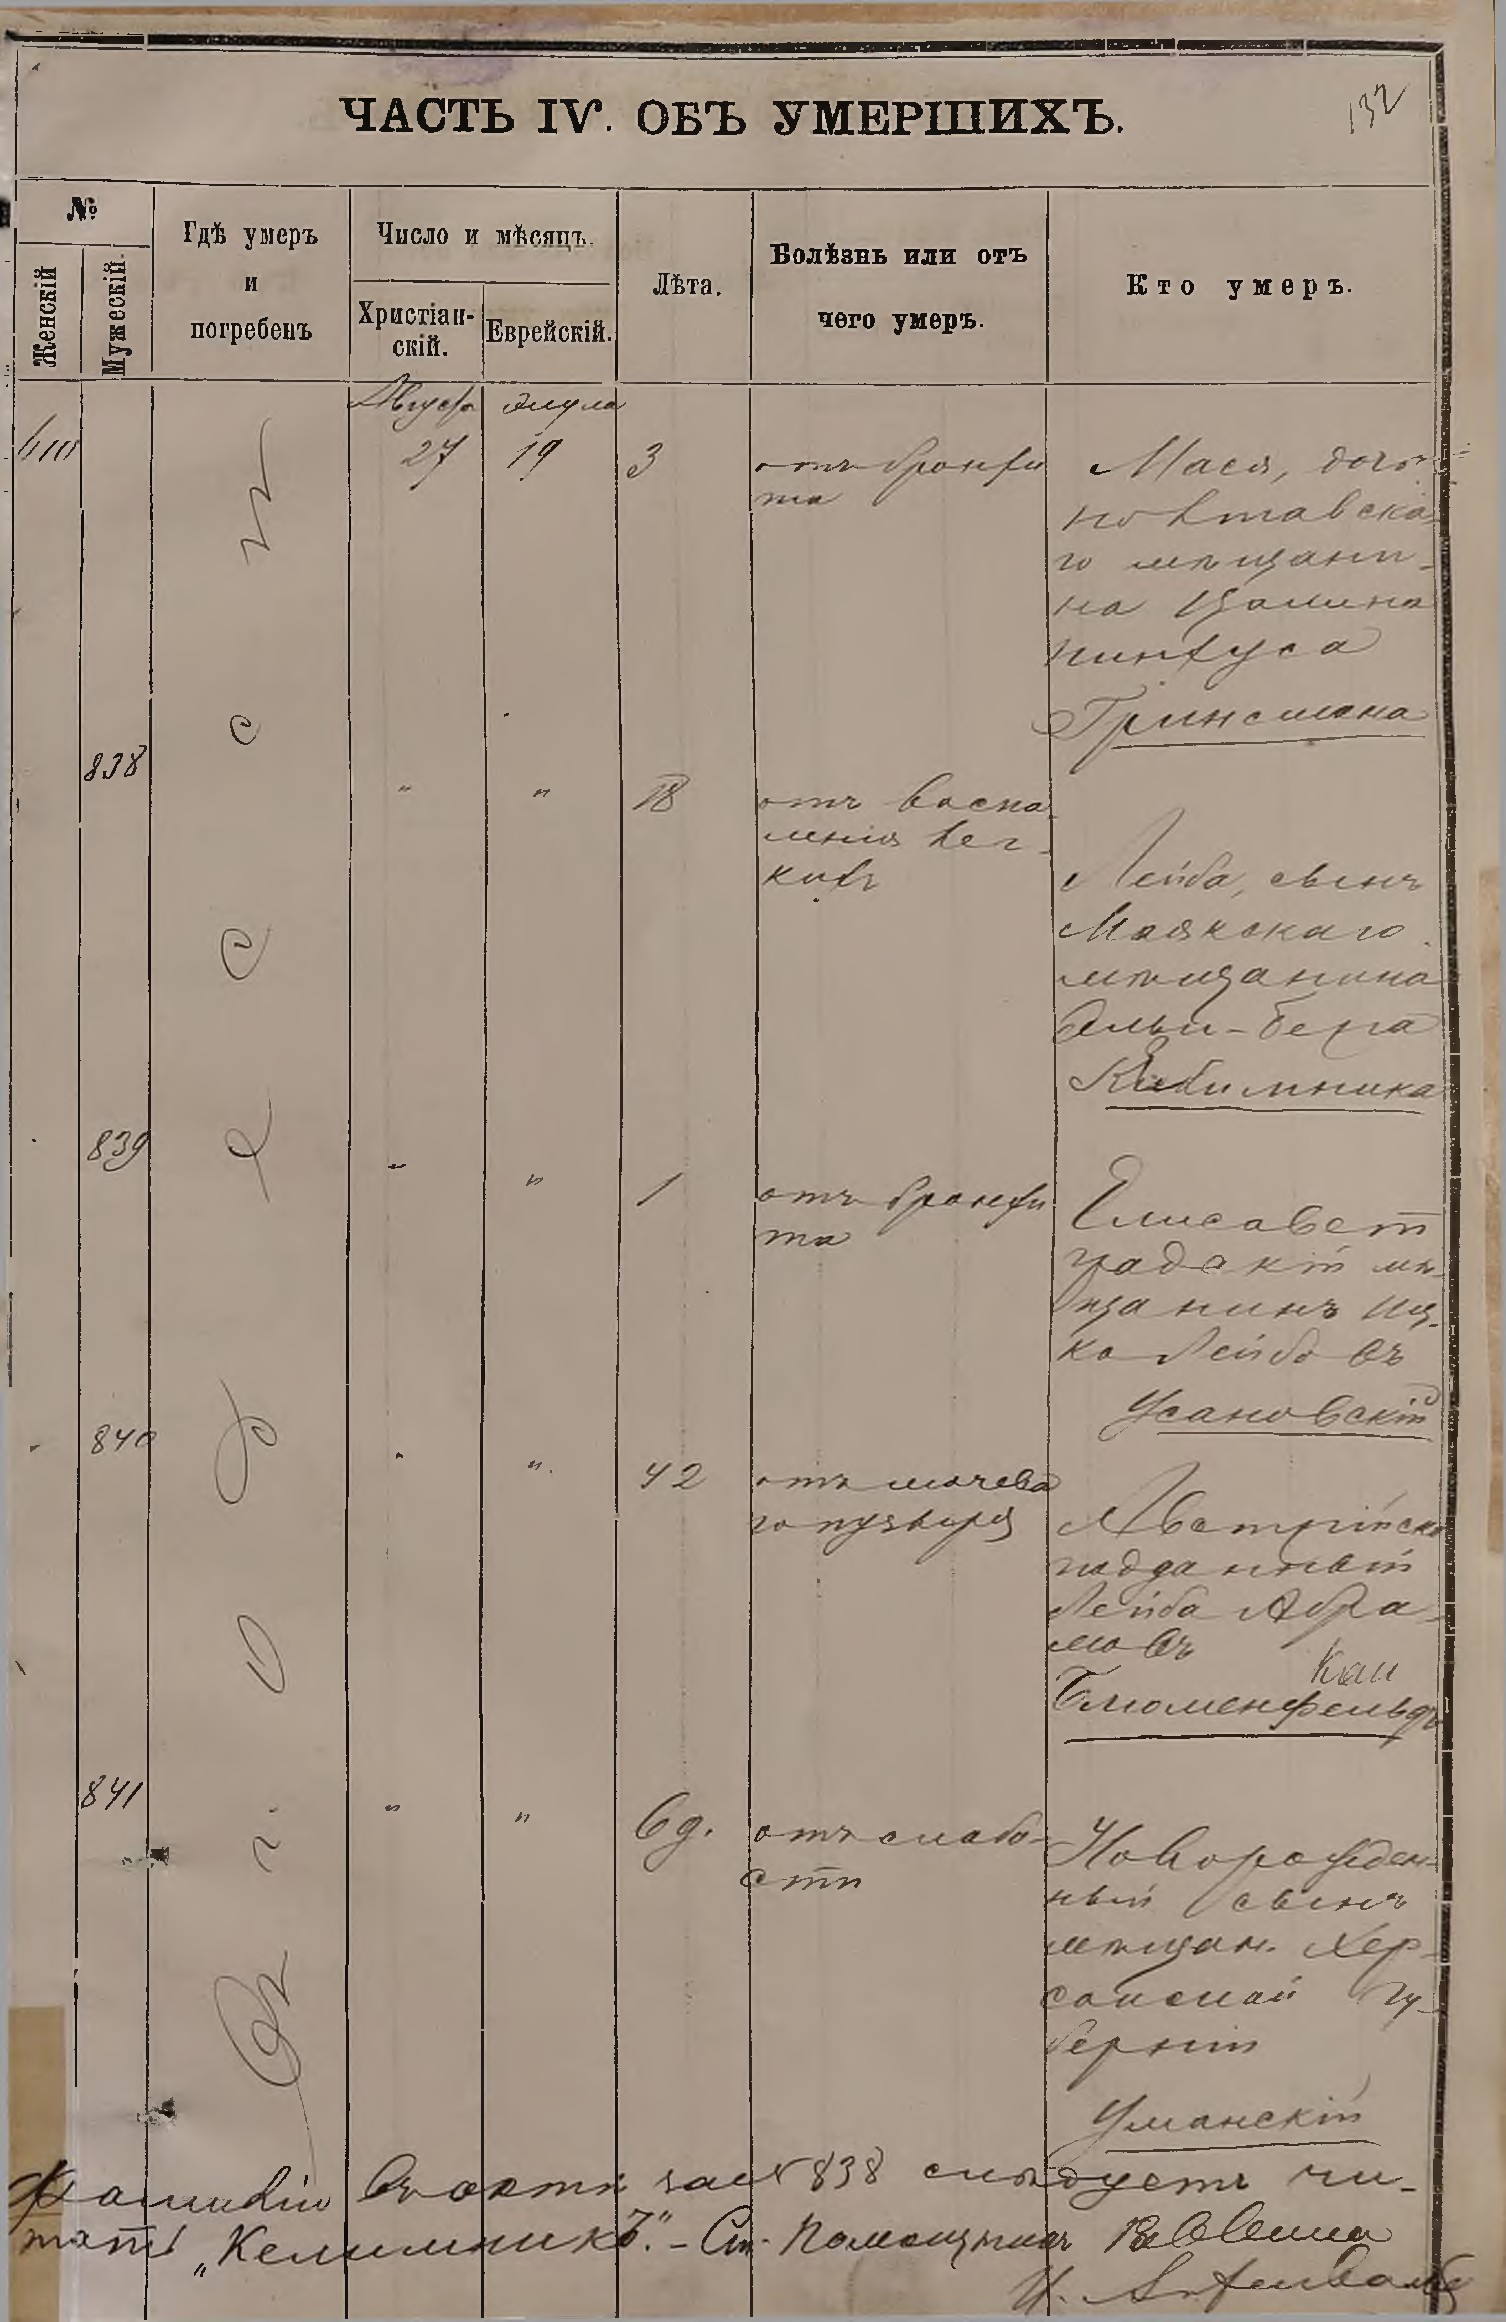 132
ЧАСТЬ IV. ОБЪ УМЕРШИХЪ.
№
Женскій
Мужескій.
Гдѣ умеръ
и
погребенъ
Число и мѣсяцъ.
Христіан-
скій.
Еврейскій.
Лѣта.
Болѣзнь или отъ
чего умеръ.
Кто умеръ.
Въ г. Одессѣ
Августа Элула
27 19 3
отъ бронхи
та
Мася, дочь
полтавска
го мѣщани-
на
Пинхуса
Гринсмана
838 " " 18
отъ воспа
ленія лег-
кихъ
Лейба, сынъ
Маякскаго
мѣщанина
-бера
839 " " 1
отъ бронхи
та
Елисавет
градскій мѣ-
щанинъ Иц-
ко Лейбовъ
Усановскій
840 " " 42
отъ мочева
го пузыря
Австрійск
подданный
Лейба Абра-
мовъ
Кац
Блюменфельдъ
841 " " 6 д.
отъ слабо-
сти
Новорожден-
ный сынъ
мѣщан. Хер-
сонской гу-
берніи
Уманскій
Фамилію въ актѣ за № 838 слѣдуетъ чи-
тать „Келимникъ“. - Ст. Помощникъ Раввина
И.